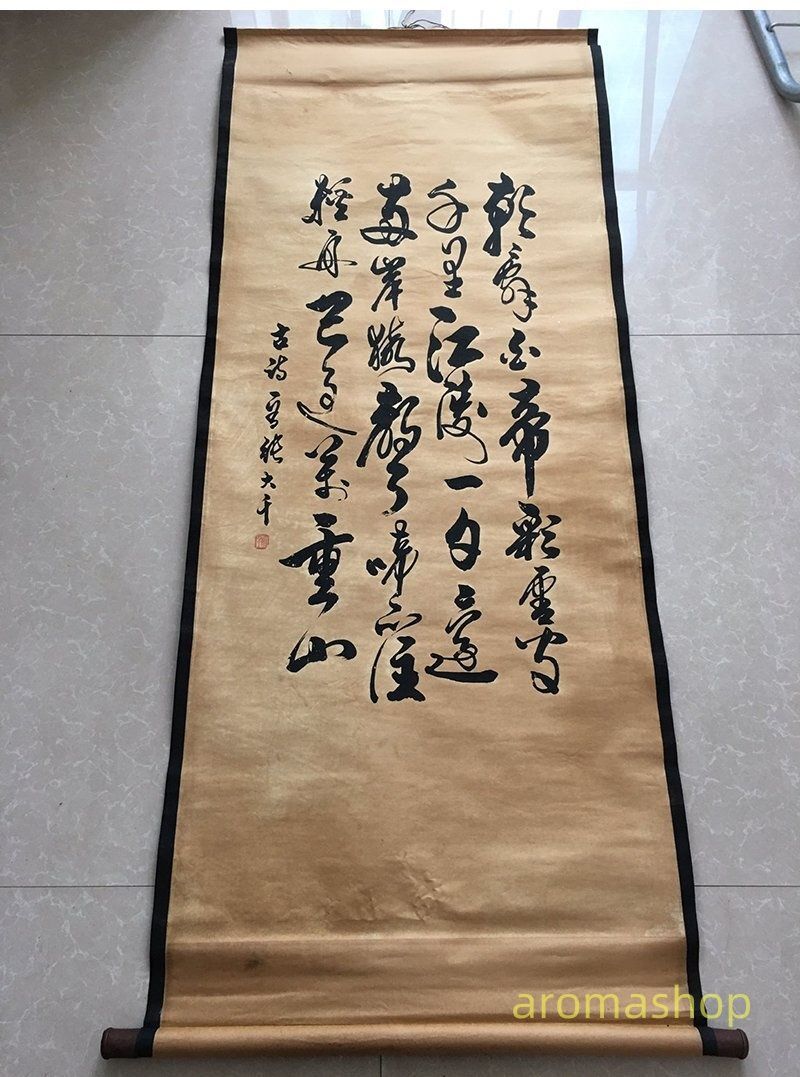 朝辞白帝彩雲間
千里江陵一日還
兩岸猿聲啼不住
輕舟已過萬重山
古詩一首張大千
aromashop